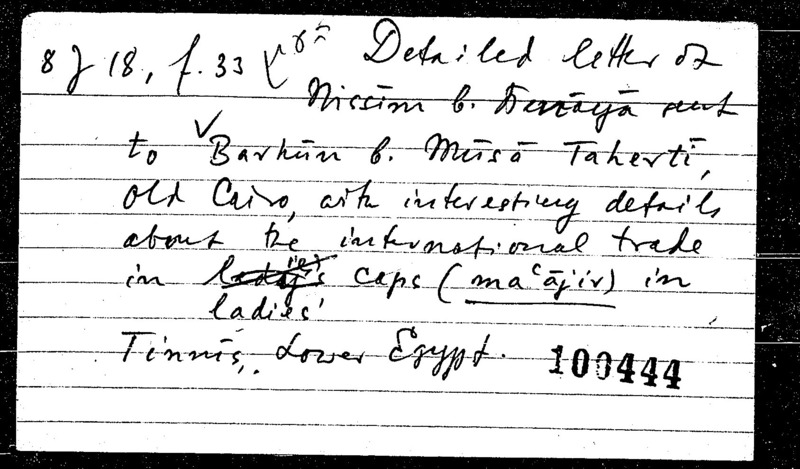 8 J 18, f. 33 Detailed letter of
Nissīm b. sent
to Barhūn b. Mūsā Tahertī,
Old Cairo, with interesting details
about the international trade
in caps (maʿājir) in
ladies'
Tinnīs, Lower Egypt. 100444